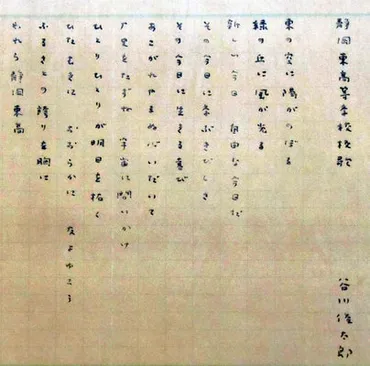 静岡東高等学校校歌
谷川俊太郎
東の空に陽がのぼる
緑の丘に風が光る
新しい今日 自由な今日だ
その今日に学ぶきびしさ
その今日に生きる喜び
あこがれやまぬ心いだいて
歴史をたずね 宇宙に問いかけ
ひとりひとりが明日を拓く
ひたむきに おおらかに 友よゆこう
ふるさとの誇りを胸に
われら静岡東高